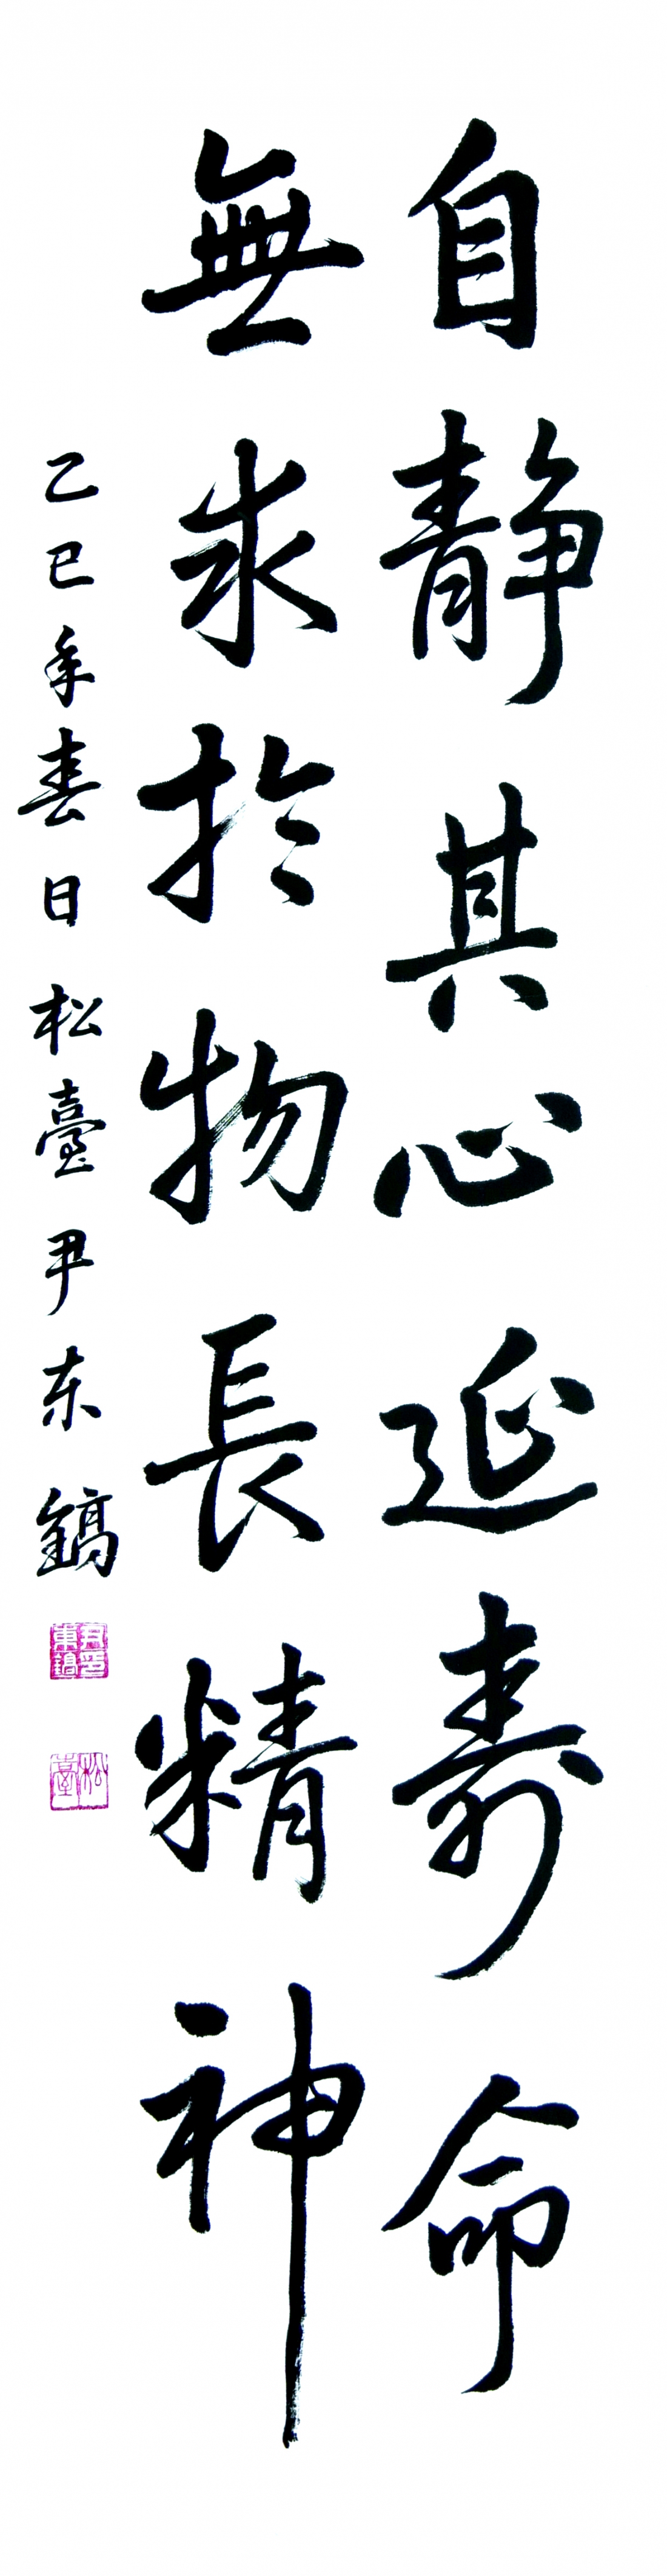 自静其心延寿命
無求於物長精神
乙巳年春日松臺尹东鎬
尹東鎬印
松臺